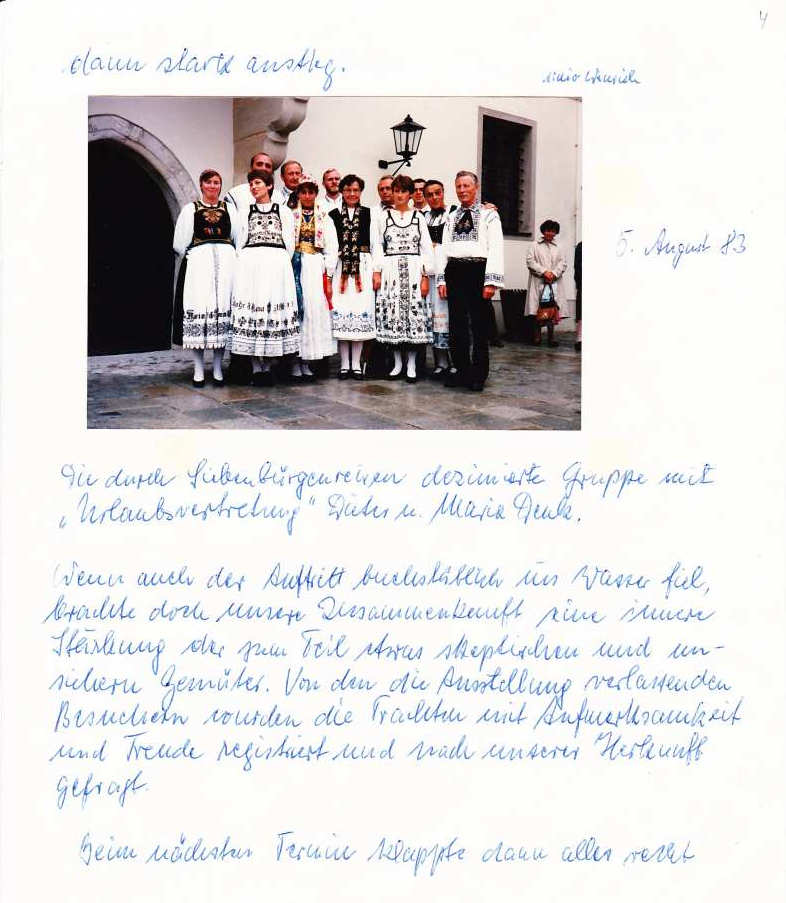 4
dann stark anstieg.
5. August 83
Die durch Siebenbürgenreisen dezimierte Gruppe mit
„Urlaubsvertretung" Dieter u. Maria Denk.
Wenn auch der Auftritt buchstäblich ins Wasser fiel,
brachte doch unsere Zusammenkunft eine innere
Stärkung der zum Teil etwas skeptischen und un-
sichern Gemüter. Von den die Ausstellung verlassenden
Besuchern wurden die Trachten mit Aufmerksamkeit
und Freude registriert und nach unserer Herkunft
gefragt.
Beim nächsten Termin klappte dann alles recht